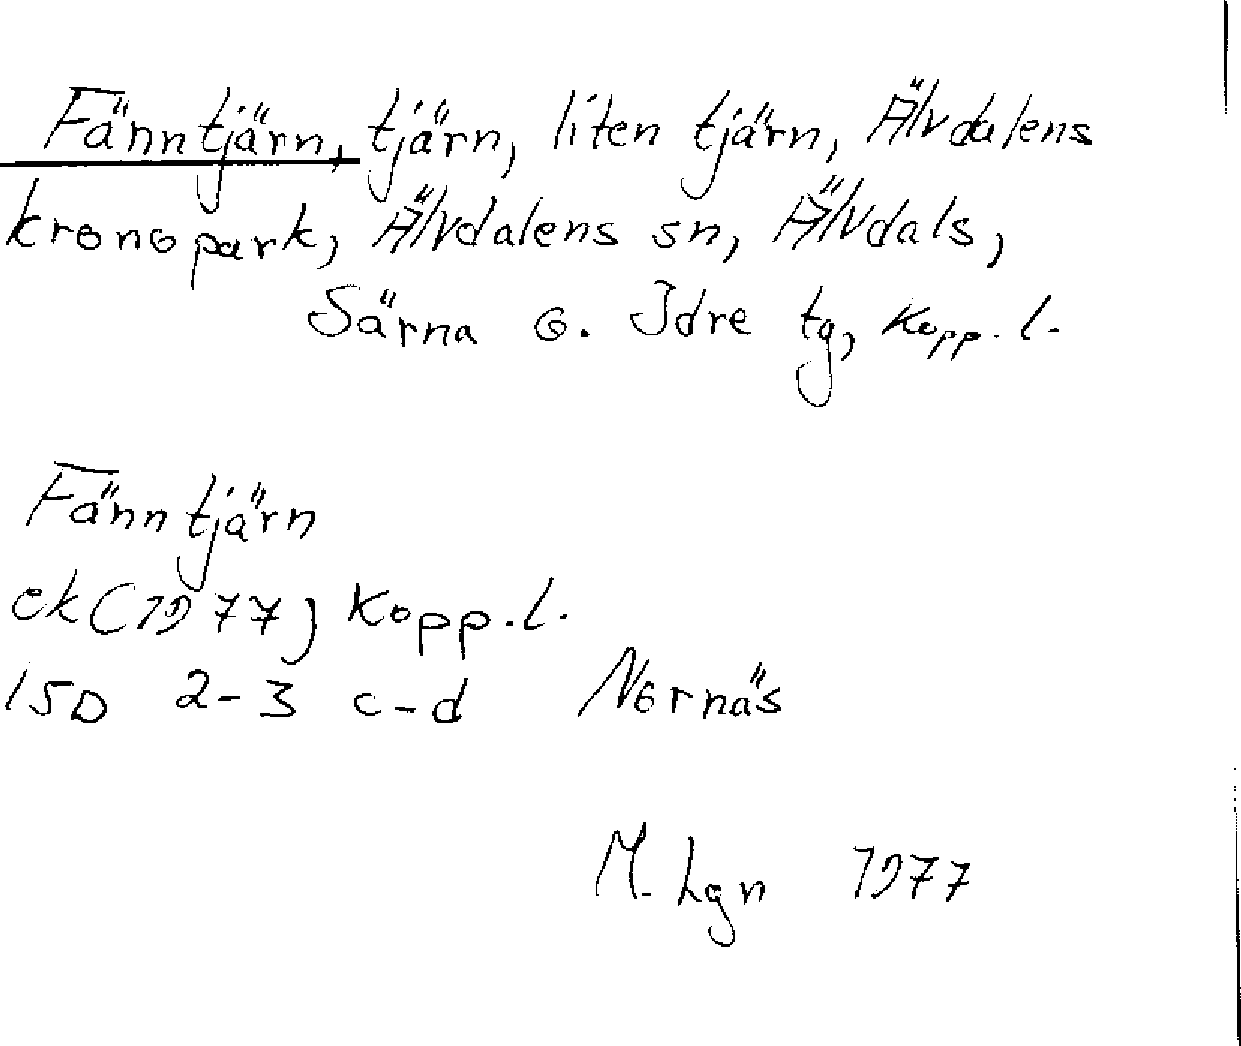 Fänntjärn, tjärn, liten tjärn, Älvdalens
kronopark, Älvdalens sn, Älvdals,
Särna o. Idre tg, Kopp. l.
Fänntjärn
ek (1977) Kopp. l.
15D 2-3 c-d Nornäs
M. Lgn 1977